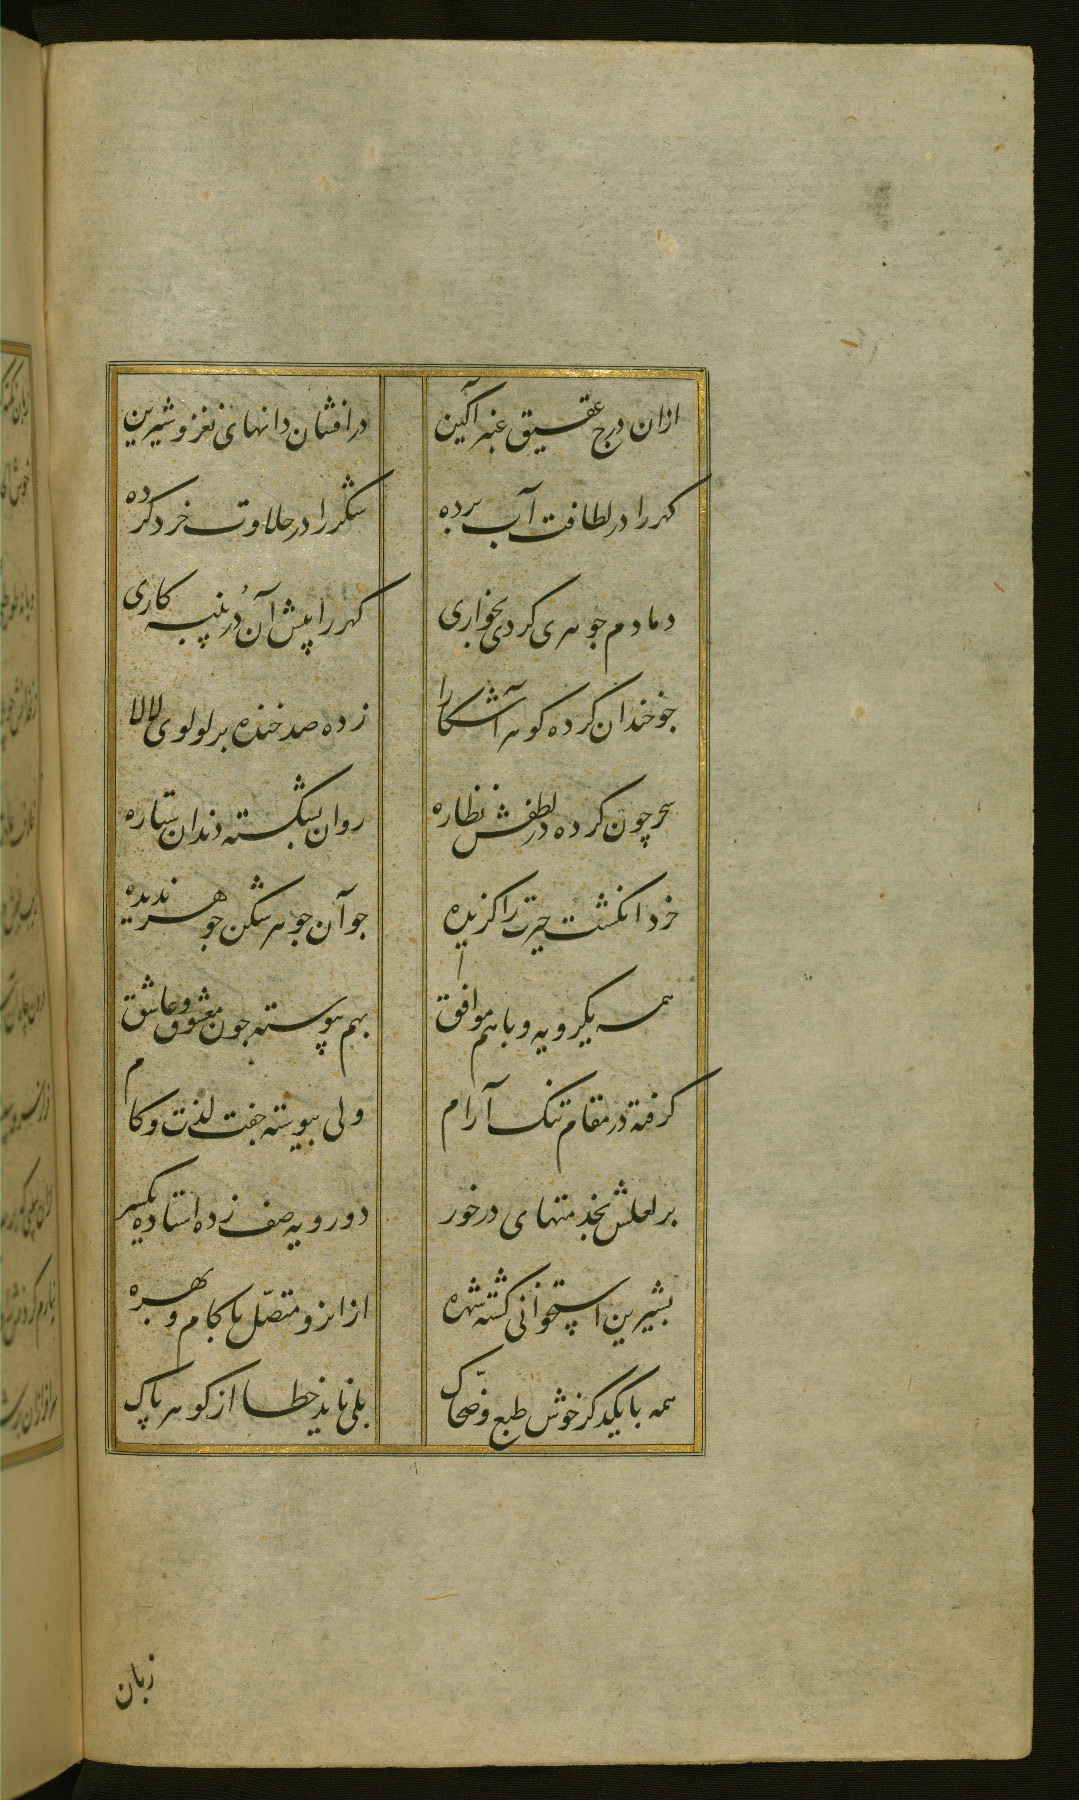 ازان درج عقیق عنبر آکین در افشان دانهای نغز و شیرین
کهر را در لطافت آب برده شکر را در حلاوت خرد کرده
دمادم جوهری کردی بخواری کهر را پیش آن دُر پنبه کاری
جو خندان کرده کوهر آشکارا زده صد خنده بر لولوی لالا
سحر چون کرده در لطفش نظاره روان بشکسته دندان ستاره
خرد انکشت حیرت را کزیده جو آن جوهر شکن جوهر ندیده
همه یکرویه و باهم موافق بهم پیوسته جون معشوق و عاشق
کرفته در مقام تنک آرام ولی پیوسته جفت لذت و کام
بر لعلش بخدمتهای درخور دو رویه صف زده استاده یکسر
بشیرین استخوانی کشته شهره ازانرو متصل با کام و بهره
همه با یکدکر خوش طبع و ضحّاک بلی ناید خطا از کوهر پاک
زبان